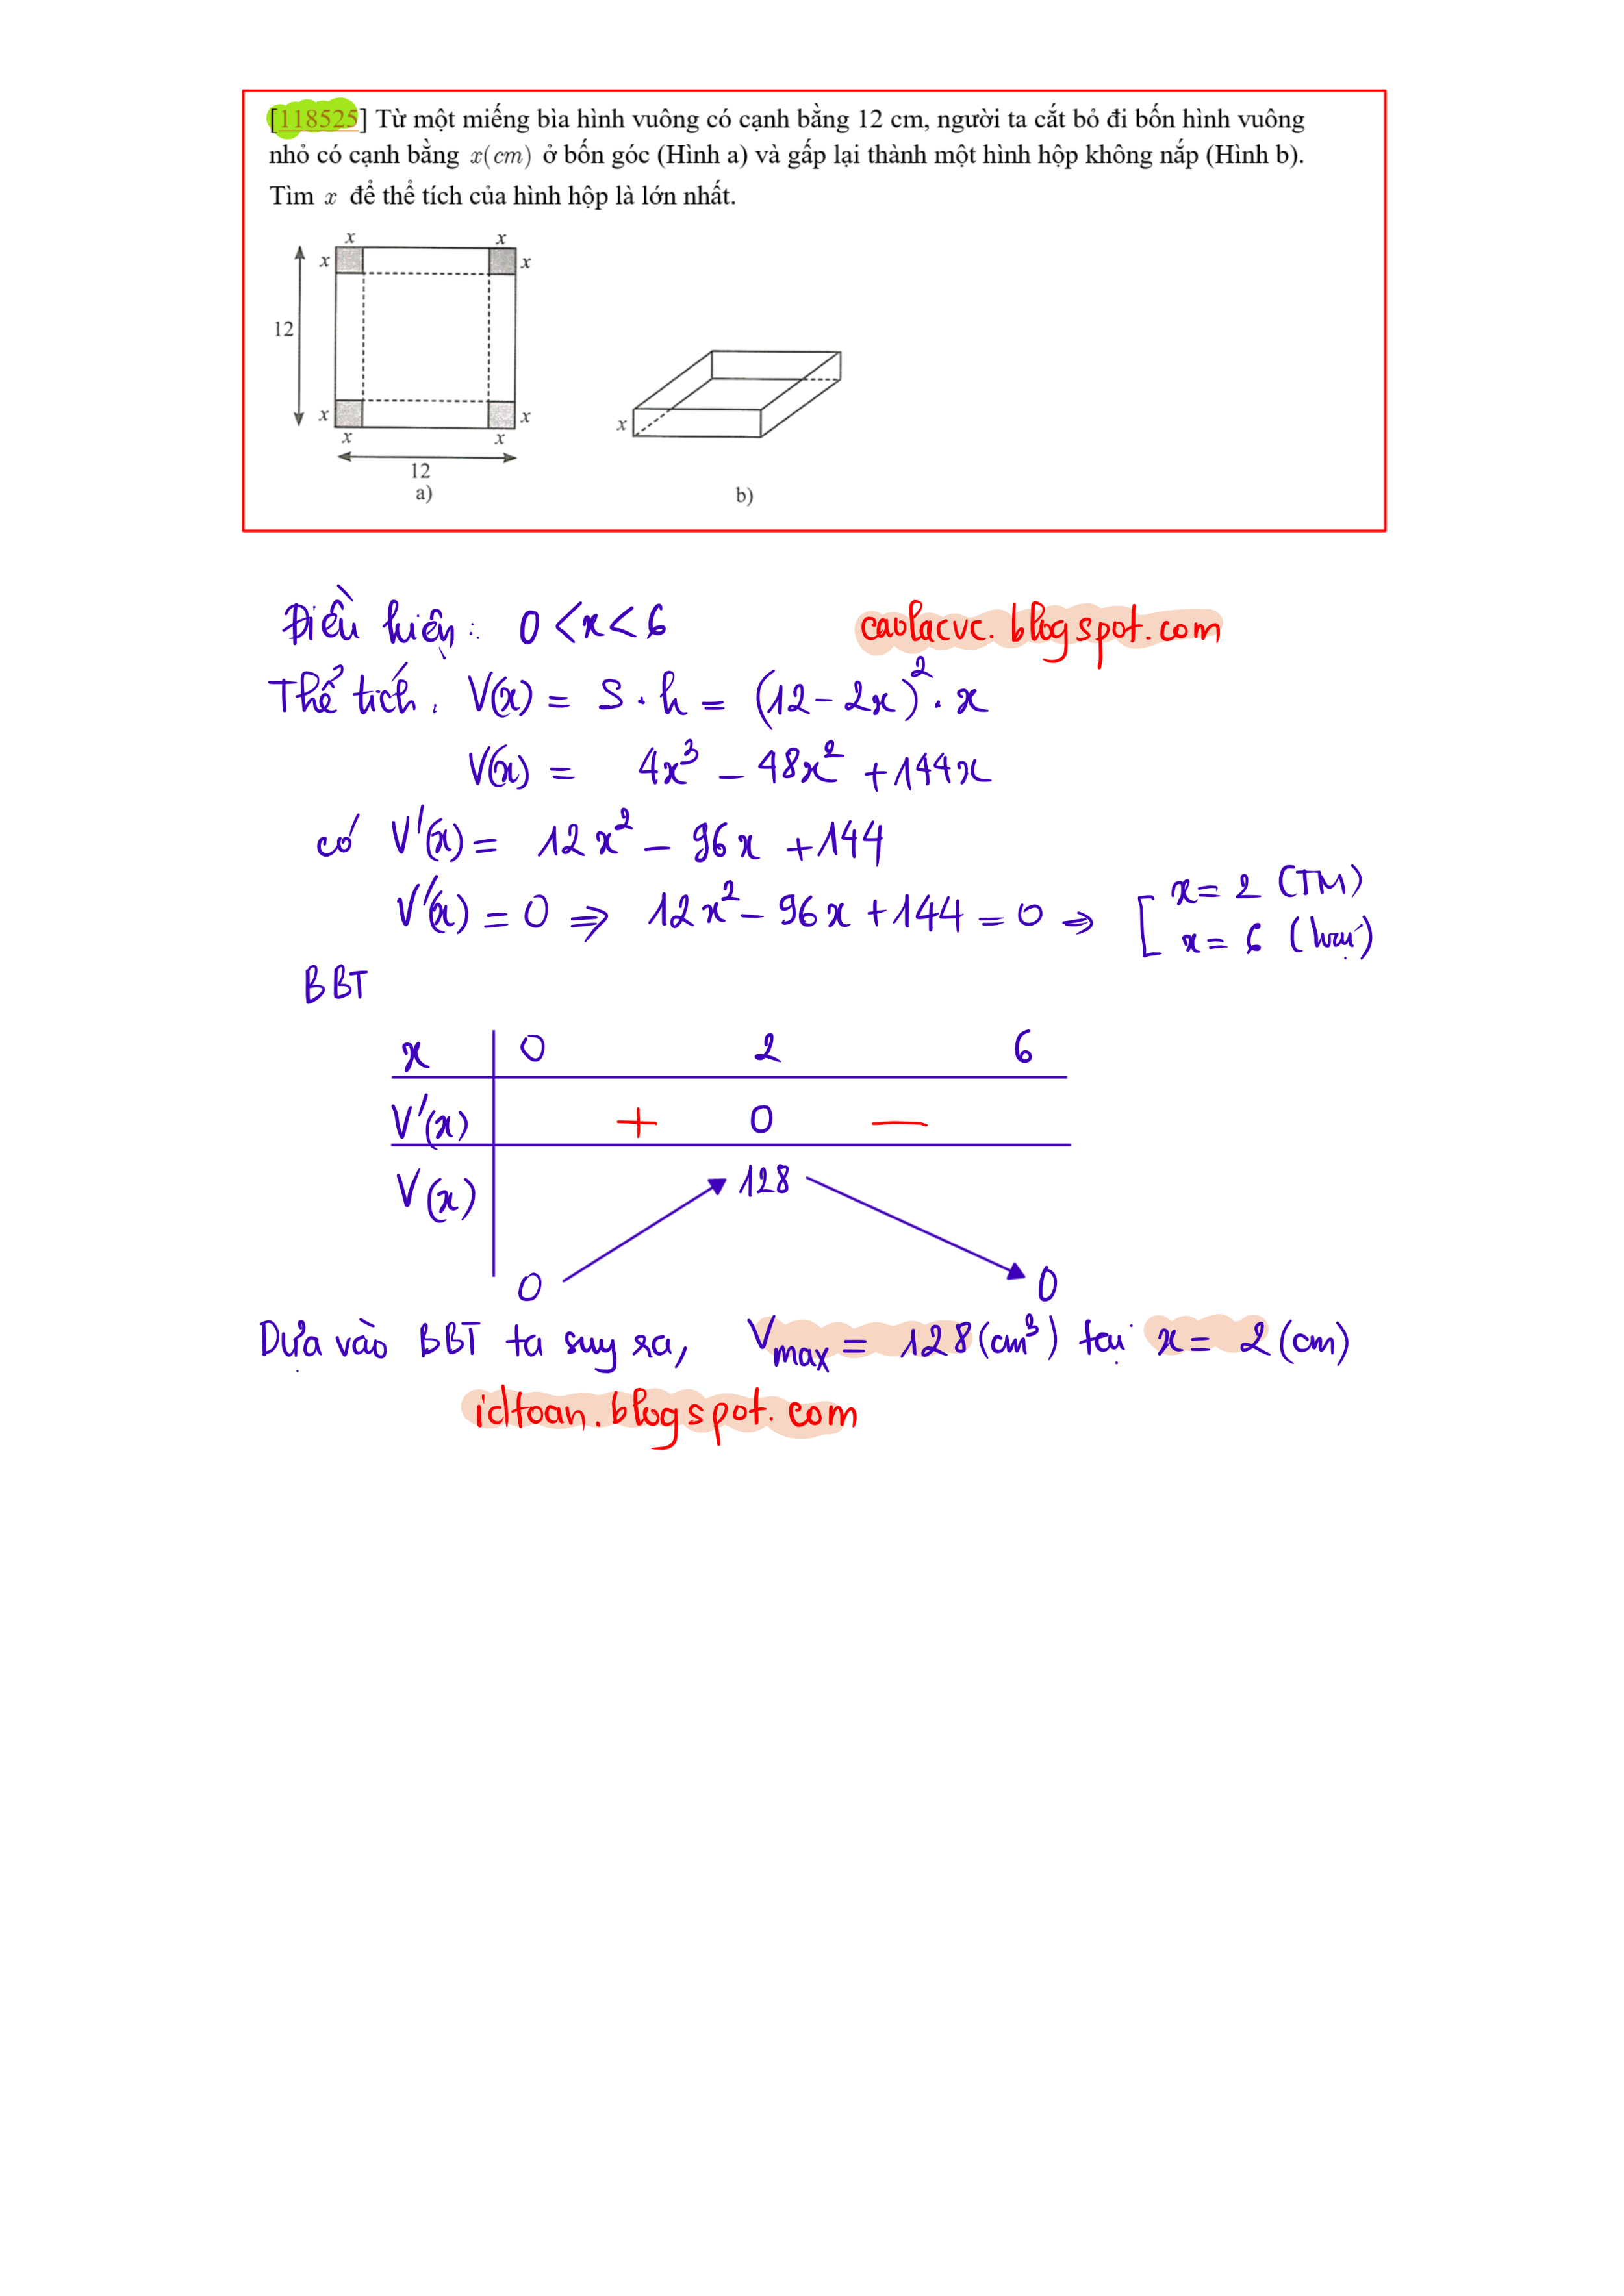 [118525] Từ một miếng bìa hình vuông có cạnh bằng 12 cm, người ta cắt bỏ đi bốn hình vuông
nhỏ có cạnh bằng x(cm) ở bốn góc (Hình a) và gấp lại thành một hình hộp không nắp (Hình b).
Tìm x để thể tích của hình hộp là lớn nhất.
x x
x x
12
x x
x x
12
a)
x
b)
Điều kiện: 0 < x < 6
caolacvc.blogspot.com
Thể tích. V(x) = S . h = (12 - 2x)² . x
V(x) = 4x³ - 48x² + 144x
có V'(x) = 12x² - 96x + 144
V'(x) = 0 ⇒ 12x² - 96x + 144 = 0 ⇒ [ x = 2 (TM)
x = 6 (loại)
BBT
x 0 2 6
V'(x) + 0 —
V(x) 128
0 0
Dựa vào BBT ta suy ra, Vmax = 128 (cm³) tại x = 2 (cm)
idtoan.blogspot.com